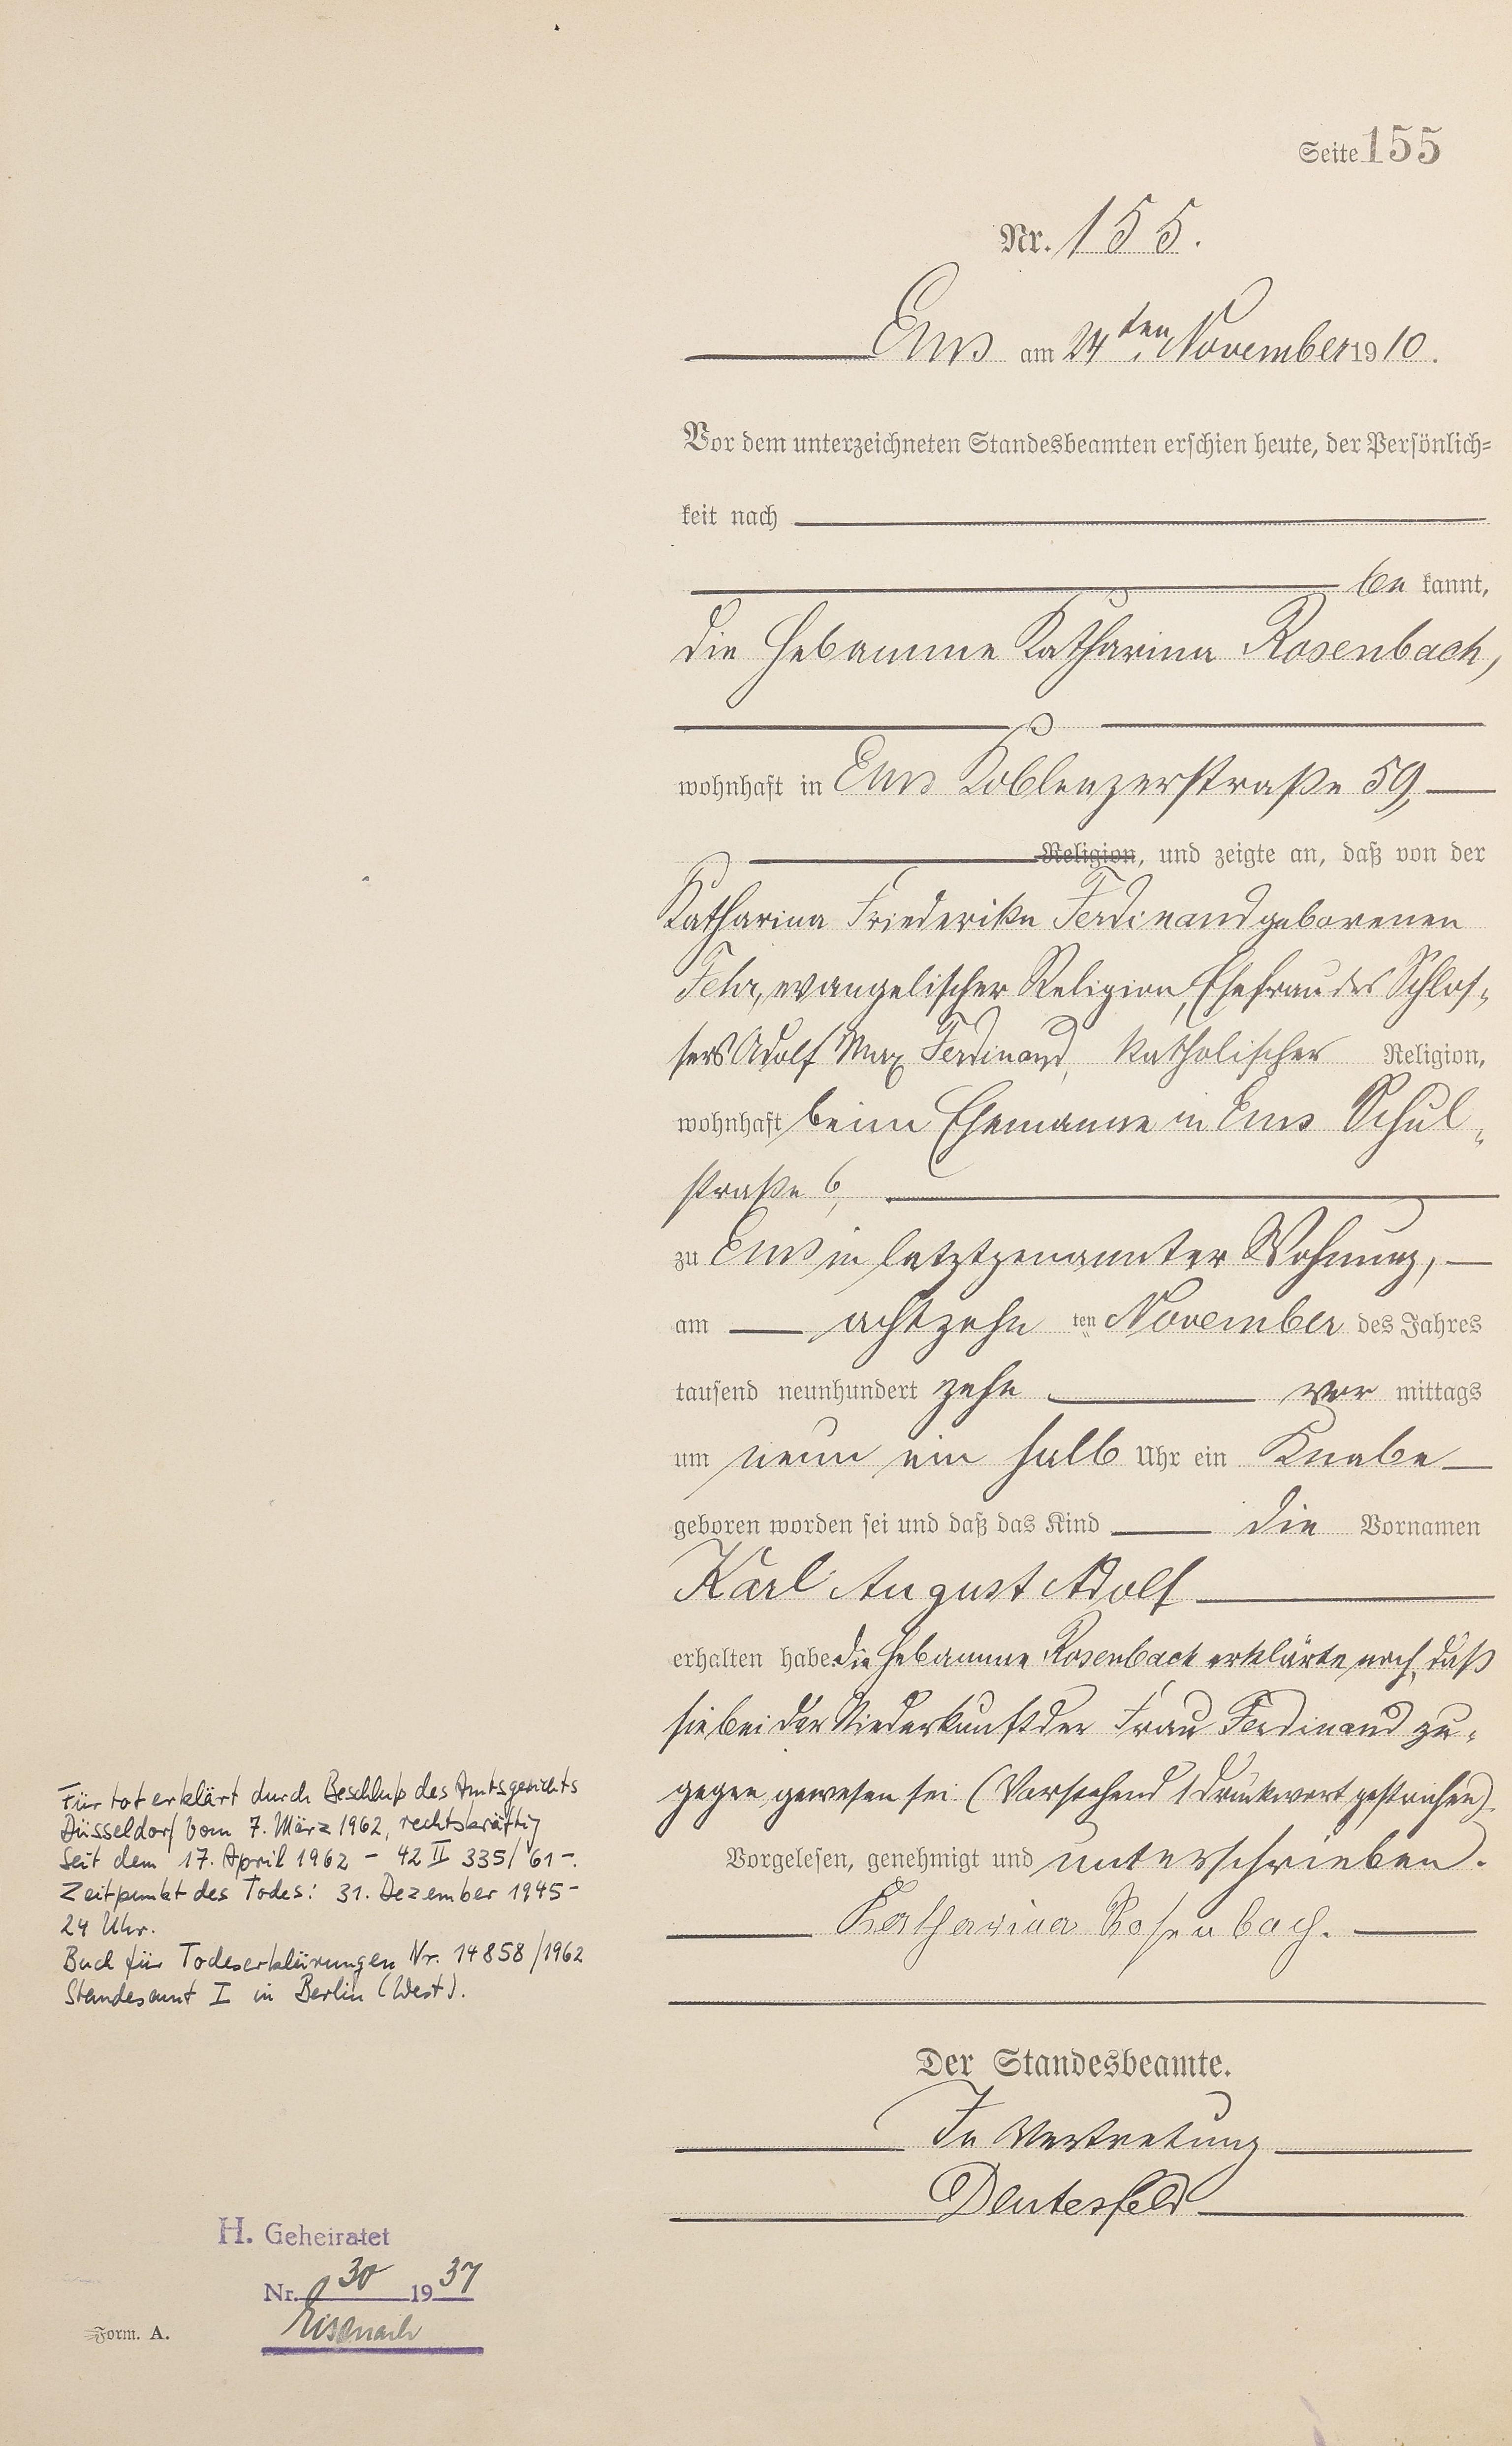 Seite 155
Nr. 155.
Ems am 24ten November 1910.
Vor dem unterzeichneten Standesbeamten erschien heute, der Persönlich=
keit nach
be kannt,
die Hebamme Katharina Rosenbach,
wohnhaft in Ems Koblenzerstraße 59,
Religion, und zeigte an, daß von der
Katharina Friederike Ferdinand geborenen
Fehr, evangelischer Religion, Ehefrau des Schlos-
sers Adolf Max Ferdinand, katholischer Religion,
wohnhaft beim Ehemanne in Ems Schul-
straße 6,
zu Ems in letztgenannter Wohnung,
am achtzehn ten November des Jahres
tausend neunhundert zehn vor mittags
um neun ein halb Uhr ein Knabe
geboren worden sei und daß das Kind die Vornamen
Karl August Adolf
erhalten habe. Die Hebamme Rosenbach erklärte noch, daß
sie bei der Niederkunft der Frau Ferdinand zu-
gegen gewesen sei. (Vorstehend 1 Druckwort gestrichen).
Vorgelesen, genehmigt und unterschrieben.
Katharina Rosenbach.
Der Standesbeamte.
In Vertretung
Deutesfeld
Für tot erklärt durch Beschluß des Amtsgerichts
Düsseldorf vom 7. März 1962, rechtskräftig
seit dem 17. April 1962 - 42 II 335/61-.
Zeitpunkt des Todes: 31. Dezember 1945-
24 Uhr.
Buch für Todeserklärungen Nr. 14858/1962
Standesamt I in Berlin (West).
H. Geheiratet
Nr. 30 1937
Eisenach
Form. A.